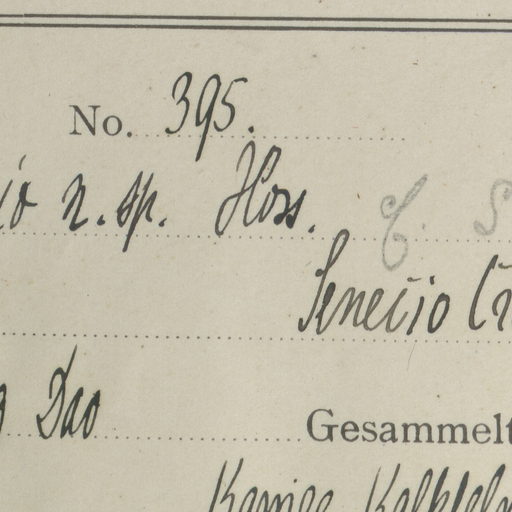 No. 395.
io n. sp. Hoss. C. S
Senecio Cr
Dao Gesammelt